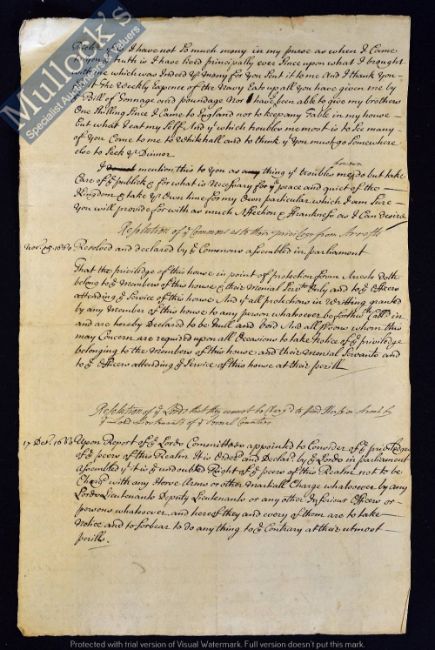 I have not so much mony in my purse as when I Came
to you y truth is I have lived principally ever since upon what I brought
with me which was Indeed yr mony for you sent it to me And I thank you
for it The Weekly Expence of the Navy Eats up all you have given me by
y Bill of Tonnage and poundage Nor have I been able to give my brothers
One shilling since I Came to England nor to keep any Table in my house
but what I eat my self And yt which troubles me most is to see many
of you Come to me to Whitehall and to think yt you must go somewhere
else to seek yr Dinner
I mention this to you as any thing yt troubles me do but take
Care of ye publick & for what is Necessary for ye peace and quiet of the
Kingdom & take yr Own time for my Own particular which I am sure
you will provide for with as much Affection & frankness as I Can desire
Resolution of ye Commons as to their priviledge from Arrests
Resolved and declared by ye Commons assembled in parliament
That the priviledge of this house in point of protection from Arrests doth
belong to ye Members of this house & their Menial Servts Only and to ye Officers
attending ye Service of this house And yt all protections in Writting granted
by any Member of this house to any person whatsoever be forthwth Call'd in
and are hereby Declared to be Null and Void And all persons whom this
may Concern are required upon all Occasions to take Notice of ye priviledge
belonging to the Members of this house and their Menial Servants and
to ye Officers attending ye Service of this house at their perill
Resolution of ye Lords that they cannot be Charg'd to find Horse or Arms by
ye Lord Lieutenants of ye Several Counties
17 Dec. Upon Report of ye Lords Committees appointed to Consider of ye priviledge
of ye peers of this Realm It is Order'd and Declar'd by ye Lords in parliament
assembled yt it is ye undoubted Right of ye peers of this Realm not to be
Charg'd with any Horse Arms or other Marshall Charge whatsoever by any
Lords Lieutenants Deputy Lieutenants or any other Inferiour Officers or
persons whatsoever and hereof they and every of them are to take
Notice and to forbear to do any thing to ye Contrary at their utmost
perills.
Mullock's
Specialist Auctioneers & Valuers
Protected with trial version of Visual Watermark. Full version doesn't put this mark.